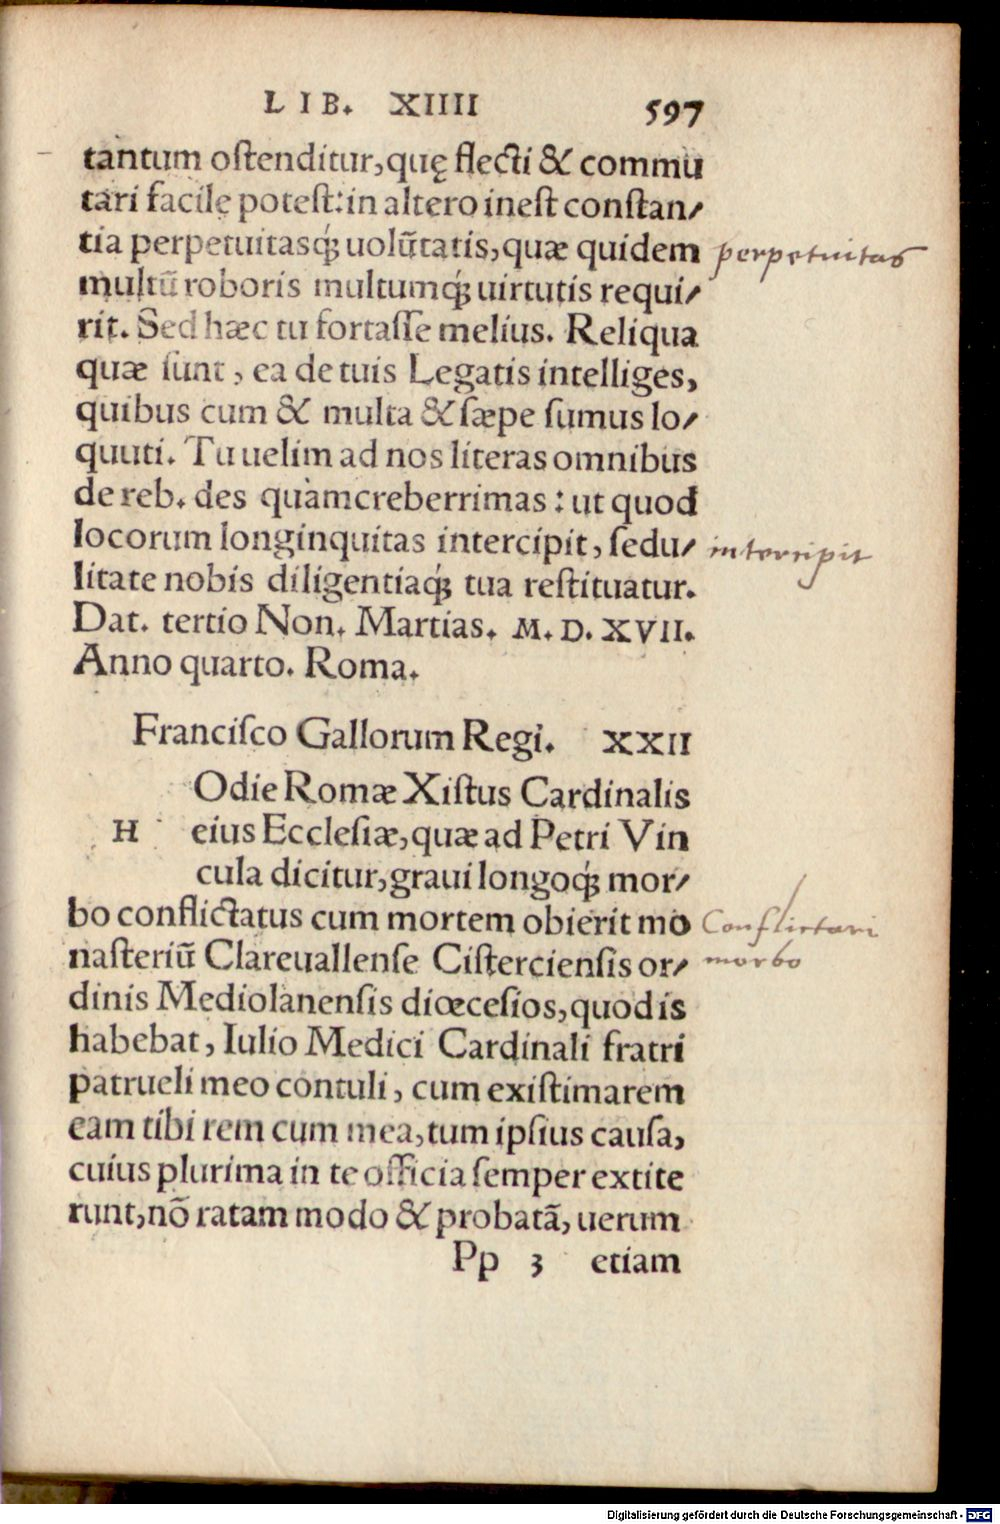 LIB. XIIII 597
tantum ostenditur, quę flecti & commu
tari facile potest: in altero inest constan/
tia perpetuitasq́ꝫ uolũtatis, quæ quidem
perpetuitas
multũ roboris multumq́ꝫ uirtutis requi/
rit. Sed hæc tu fortasse melius. Reliqua
quæ sunt, ea de tuis Legatis intelliges,
quibus cum & multa & sæpe sumus lo/
quuti. Tu uelim ad nos literas omnibus
de reb. des quàm creberrimas: ut quod
locorum longinquitas intercipit, sedu/
intercipit
litate nobis diligentiaq́ꝫ tua restituatur.
Dat. tertio Non. Martias. M. D. XVII.
Anno quarto. Roma.
Francisco Gallorum Regi. XXII
Odie Romæ Xistus Cardinalis
H eius Ecclesiæ, quæ ad Petri Vin
cula dicitur, graui longoq́ꝫ mor/
bo conflictatus cum mortem obierit mo
Conflictari
nasteriũ Clareuallense Cisterciensis or/
morbo
dinis Mediolanensis diœcesios, quod is
habebat, Iulio Medici Cardinali fratri
patrueli meo contuli, cum existimarem
eam tibi rem cum mea, tum ipsius causa,
cuius plurima in te officia semper extite
runt, nõ ratam modo & probatã, uerum
Pp 3 etiam
Digitalisierung gefördert durch die Deutsche Forschungsgemeinschaft - DFG